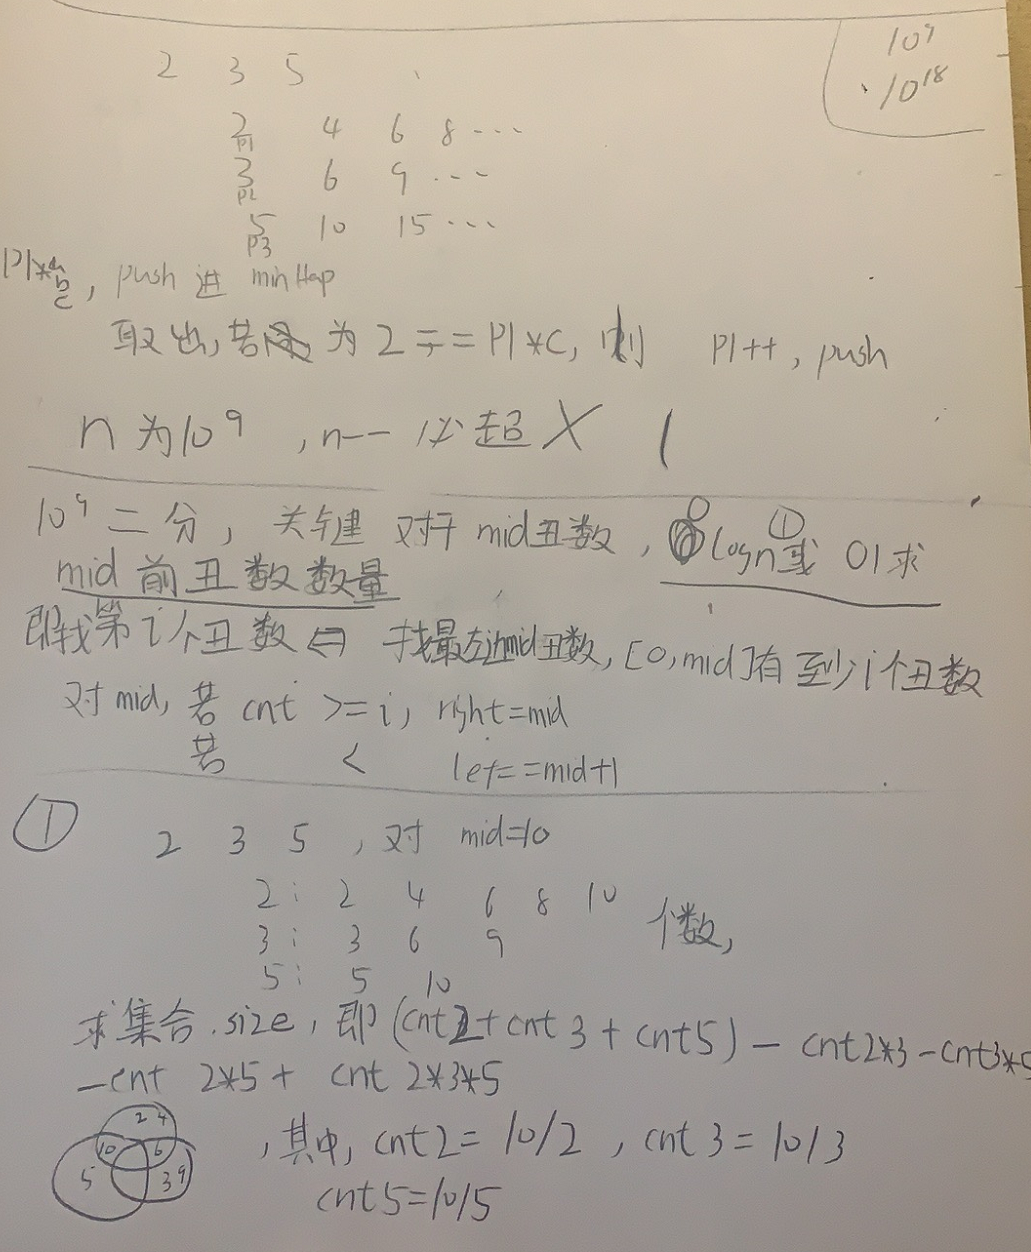 10⁹
10¹⁸
2 3 5
2 4 6 8 ...
P1
3 6 9 ...
P2
5 10 15 ...
P3
P1*a
b
c, push 进 minHap
取出,若 为 2 == P1*c, 则 P1++, push
n 为 10⁹ , n-- 必超 X
10⁹ 二分, 关键 对于 mid丑数, logn 或 O1 求
①
mid 前丑数数量
即找第 i 个丑数 ⇔ 找最左边mid丑数, [0, mid]有至少i个丑数
对 mid, 若 cnt >= i, right=mid
若 < left = mid+1
① 2 3 5 , 对 mid=10
2: 2 4 6 8 10
3: 3 6 9 个数,
5: 5 10
求集合.size, 即 (cnt2 + cnt3 + cnt5) - cnt2*3 - cnt3*5
- cnt 2*5 + cnt 2*3*5
2 4
10 6
5 3 9
, 其中, cnt2 = 10/2 , cnt3 = 10/3
cnt5=10/5